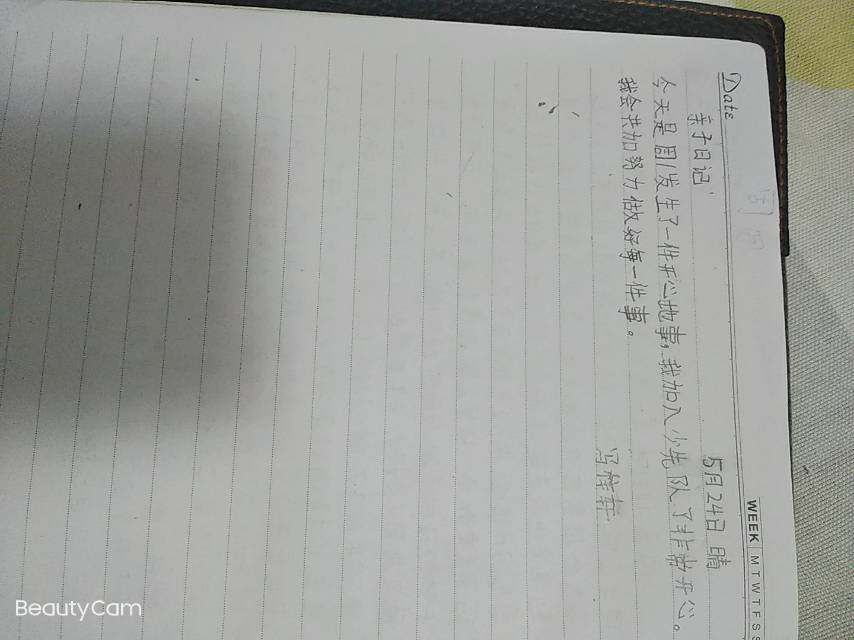 Date
WEEK M T W T F S S
亲子日记
5月24日 晴
今天是周1发生了一件开心地事,我加入少先队了非常开心。
我会共加努力做好每一件事。
冯佳轩
BeautyCam